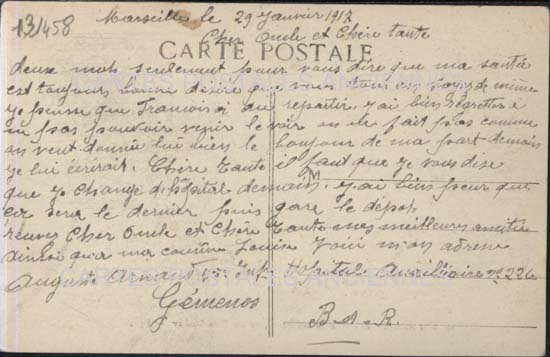 131458
Marseille le 29 Janvier 1917
Cher Oncle et Chère Tante
CARTE POSTALE
deux mots seulement pour vous dire que ma santée
est toujours bonne désire que vous tous en soyez de même
Je pense que Francois a du repartir, j'ai bien regretter a
ne pas pouvoir venir le voir on ne fait pas comme
on veut donnée lui bien le bonjour de ma part demain
je lui écrirait. Chère Tante il faut que je vous dise
que je change d'hôpital demain, j'ai bien peur que
ce sera le dernier puis gare le dépot
recevez Cher Oncle et Chère Tante mes meilleures amitiés
ainsi qu'a ma cousine Louise Voici mon adresse
Auguste Arnaud Hopital Auxiliaire no 226
Gémenos
B-d-R.